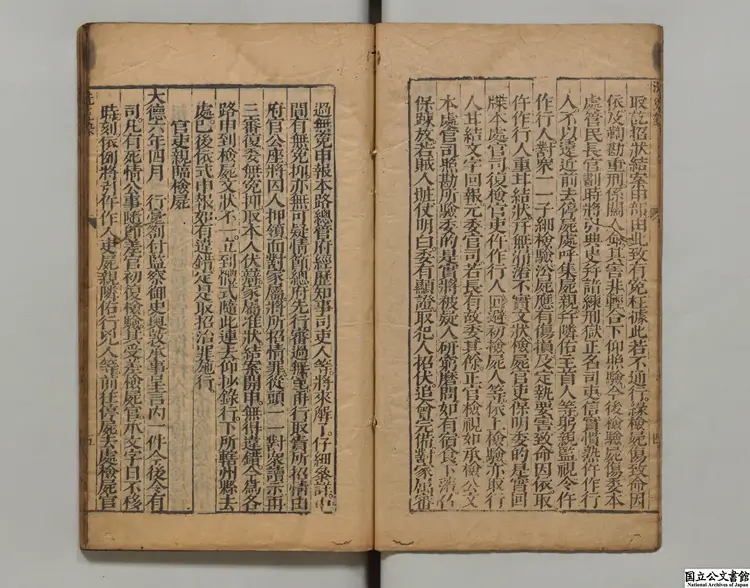 取訖招狀結案申部由此致有冤枉據此若不通行緣檢屍傷致命因
依及鞫勘重刑係關人命其害非輕合下仰照驗今後檢驗屍傷委本
處管民長官劃時將引典史并諳練刑獄正名司吏信實慣熟仵作行
人不以遠近前去停屍處呼集屍親并隣佑主首人等躬親監視令仵
作行人對衆一一子細檢驗沿屍應有傷損及定執要害致命因依取
仵作行人重甘結狀并無漏落不實文狀檢屍官吏保明委的是實回
牒本處官司復檢官吏仵作行人回避初檢屍人等依上檢驗亦取行
人甘結文字回報元委官司若長官有故委其佐正官檢視如承檢公文
本處官司照勘所驗委的是實將被疑人研窮磨問如有宿食下落
保踈放若賊人賍仗明白委有顯證取犯人招伏追會完備對家屬審
過無冤申報本路總管府經歷知事司吏人等將來解仔細叅詳中
間有無冤抑亦無可疑情節總府先行審過無冤再行取責所招情由
府官公座將囚人押領面對家屬將所招情罪從頭一一對衆讀示再
三審復委無冤抑取本人伏辯家屬准狀結案開申無得違錯今爲各
路申到檢屍文狀不一立到體式隨此連去仰抄錄行下所轄州縣去
處已後依式申報如有違錯定是取招治罪施行
官吏親臨檢屍
大德六年四月　行臺劄付監察御史輿故承事呈言內一件今後今有
司凡有死情公事隨卽差官初復檢驗其受差檢屍官承文字日不移
時刻依例將引仵作人吏屍親隣佑行兇人等前往停屍去處檢屍官
洗冤錄
五
四
国立公文書館
National Archives of Japan